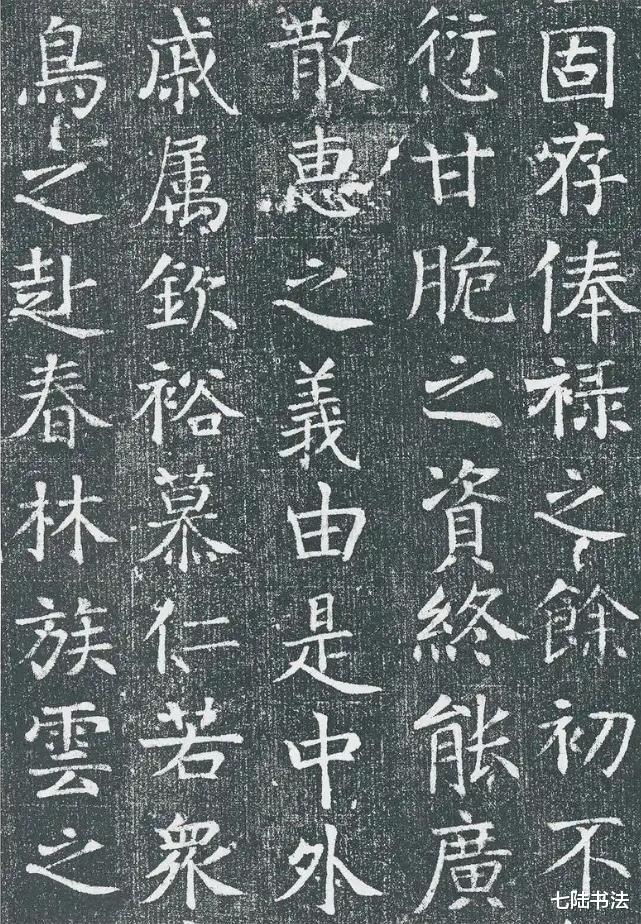 固俸禄之餘初不
愆甘脆之資終能廣
散惠之義由是中外
戚属欽裕慕仁若衆
鳥之赴春林族雲之
七陆书法